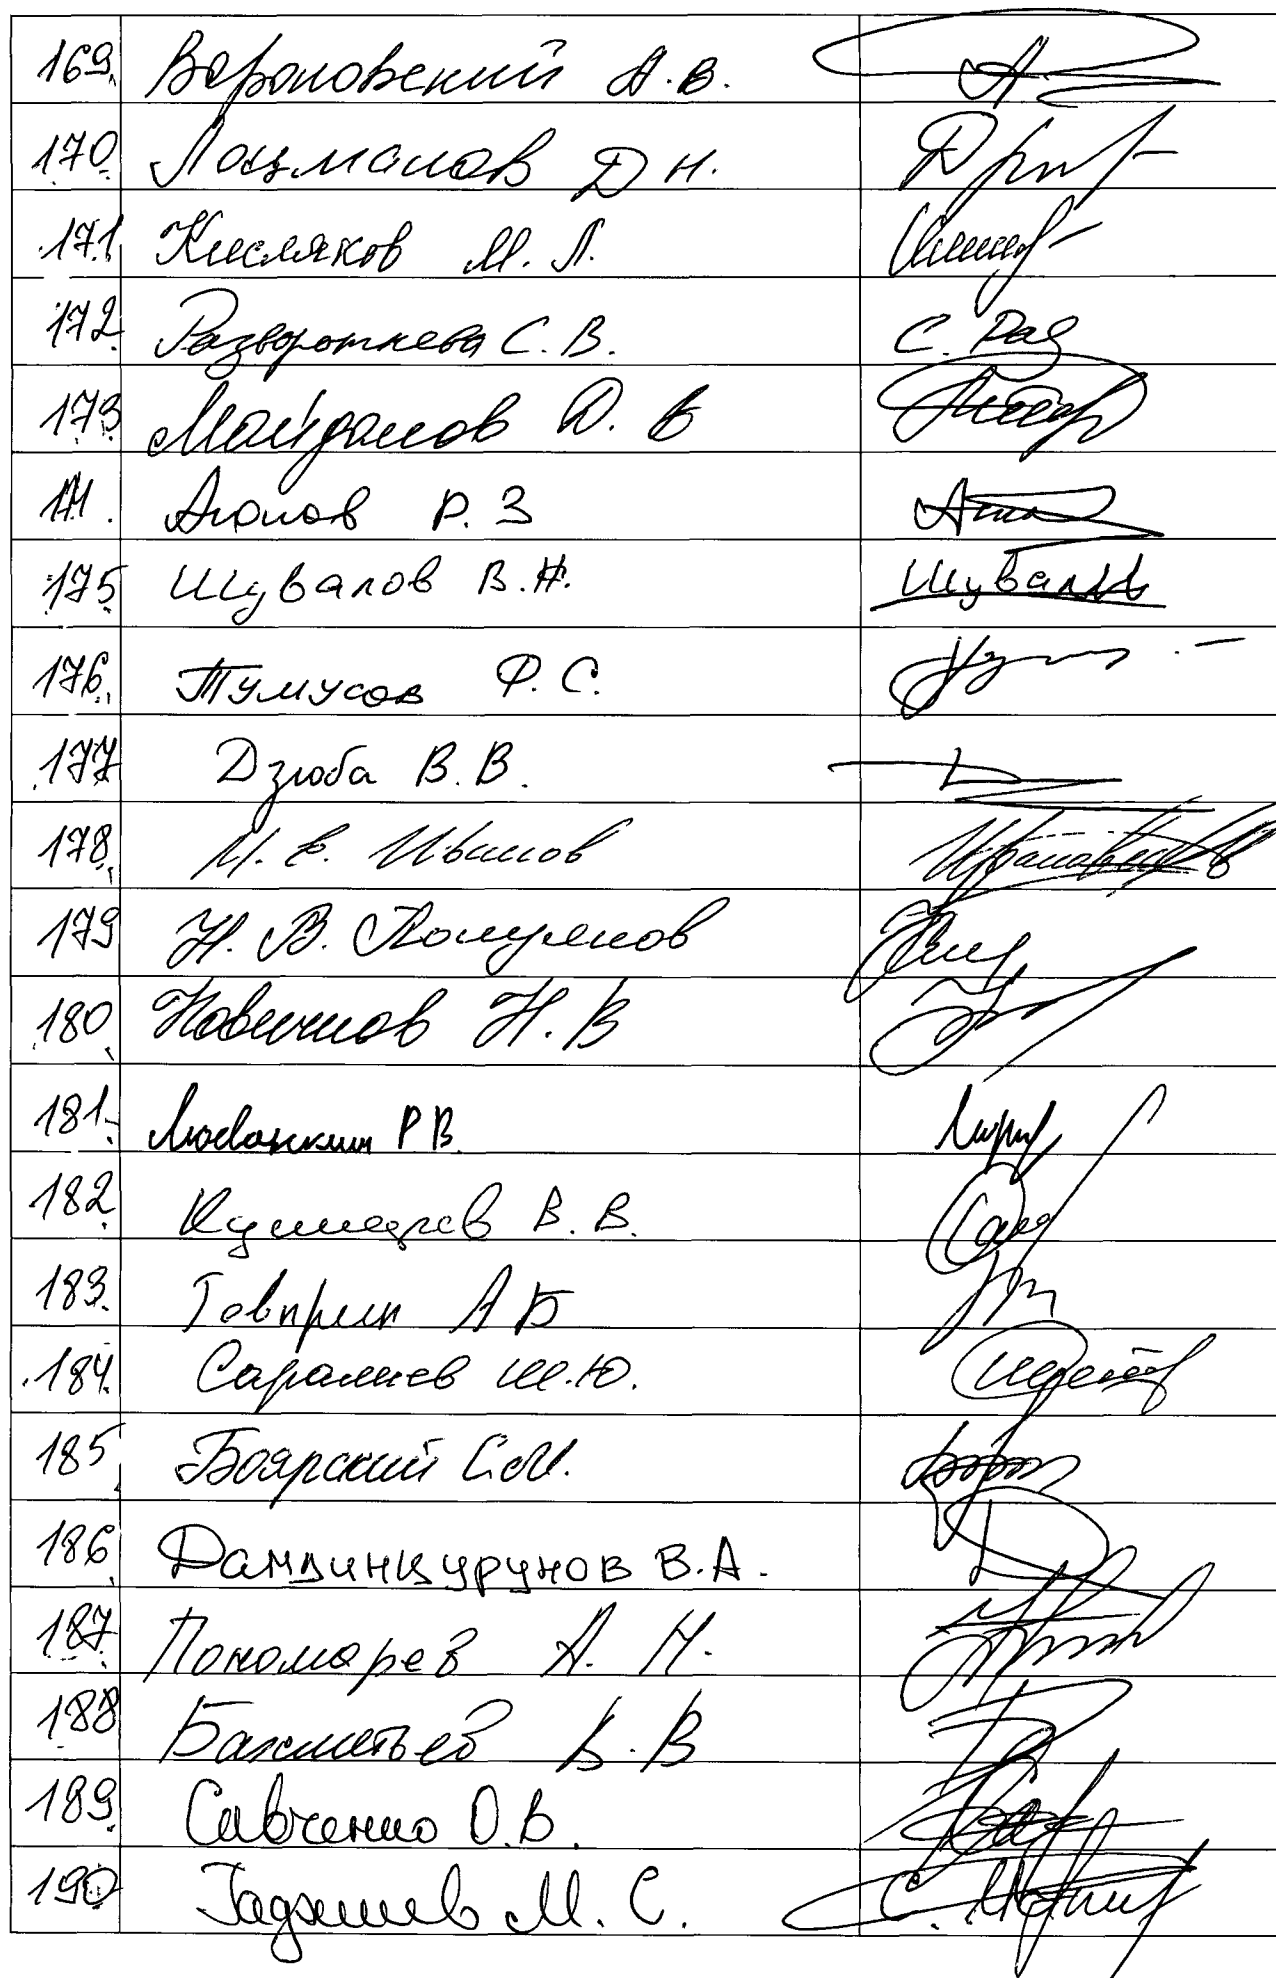 169. Вороновский А.В.
170. Лоцманов Д Н.
171. Кисляков М. Л.
172. Разворотнева С. В. С. Раз
173. Майданов Д. В
174. Аюпов Р. З
175. Шувалов В.Н. Шувалов
176. Тумусов Ф. С.
177. Дзюба В. В.
178. М. Е. Иванов
179. Н. В. Полуянов
180. Новичков Н. В
181. Любарский Р.В.
182. В. В.
183. Говырин А Б
184. Саралиев Ш.Ю.
185. Боярский С.М.
186. Дамдинцурунов В.А.
187. Пономарев А. Н.
188. Бахметьев В. В
189. Савченко О.В.
190. Гаджиев М. С.